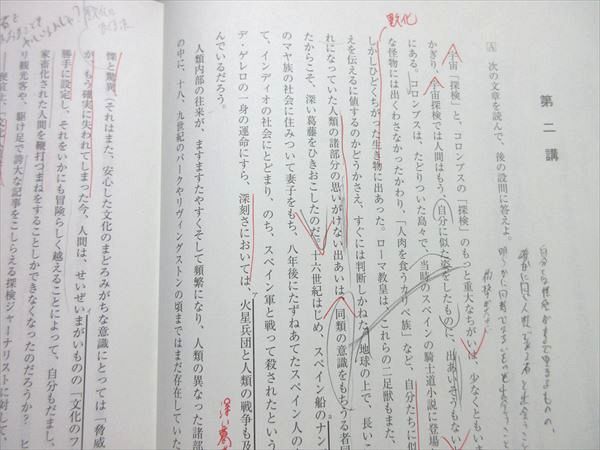 第二講
A 次の文章を読んで、後の設問に答えよ。
宇宙「探検」と、コロンブスの「探検」のもっと重大なちがいは、少なくともいま
かぎり、宇宙探検では人間はもう、自分に似た姿をしたものに、出あいそうもない
にある。コロンブスは、たどりついた島々で、当時のスペインの騎士道小説に登場
な怪物には出くわさなかったかわり、「人肉を食うカリベ族」など、自分たちに似
しかしひどくちがった生き物に出あった。ローマ教皇は、これらの二足獣もまた、
えを伝えるに値するのかどうかさえ、すぐには判断しかねた。地球の上で、長いこ
れになっていた人類の諸部分の思いがけない出あいは、同類の意識をもちうる者同
たからこそ、深い葛藤をひきおこしたのだ。十六世紀はじめ、スペイン船のナン
のマヤ族の社会に住みついて妻子をもち、八年後にたずねあてたスペイン人の
て、インディオの社会にとどまり、のち、スペイン軍と戦って殺されたという
デ・ゲレロの一身の運命にすら、深刻さにおいては、火星兵団と人類の戦争も及
んでいるだろう。
人類内部の往来が、ますますたやすくそして頻繁になり、人類の異なった諸部
の中に、十八、九世紀のパークやリヴィングストンの頃まではまだ存在していた
慄と驚異、(それはまた、安心した文化のまどろみがちな意識にとっては「脅威
が、もう確実に失われてしまった今、人間は、せいぜいまがいものの「文化のフ
勝手に設定し、それをいかにも冒険らしく越えることによって、自分もだまし、
家畜化された人間を鞭打つまねをすることしかできなくなったのだろうか? ヒ
リ観光客や、駆け足で誇大な記事をこしらえる探検ジャーナリストに対して、